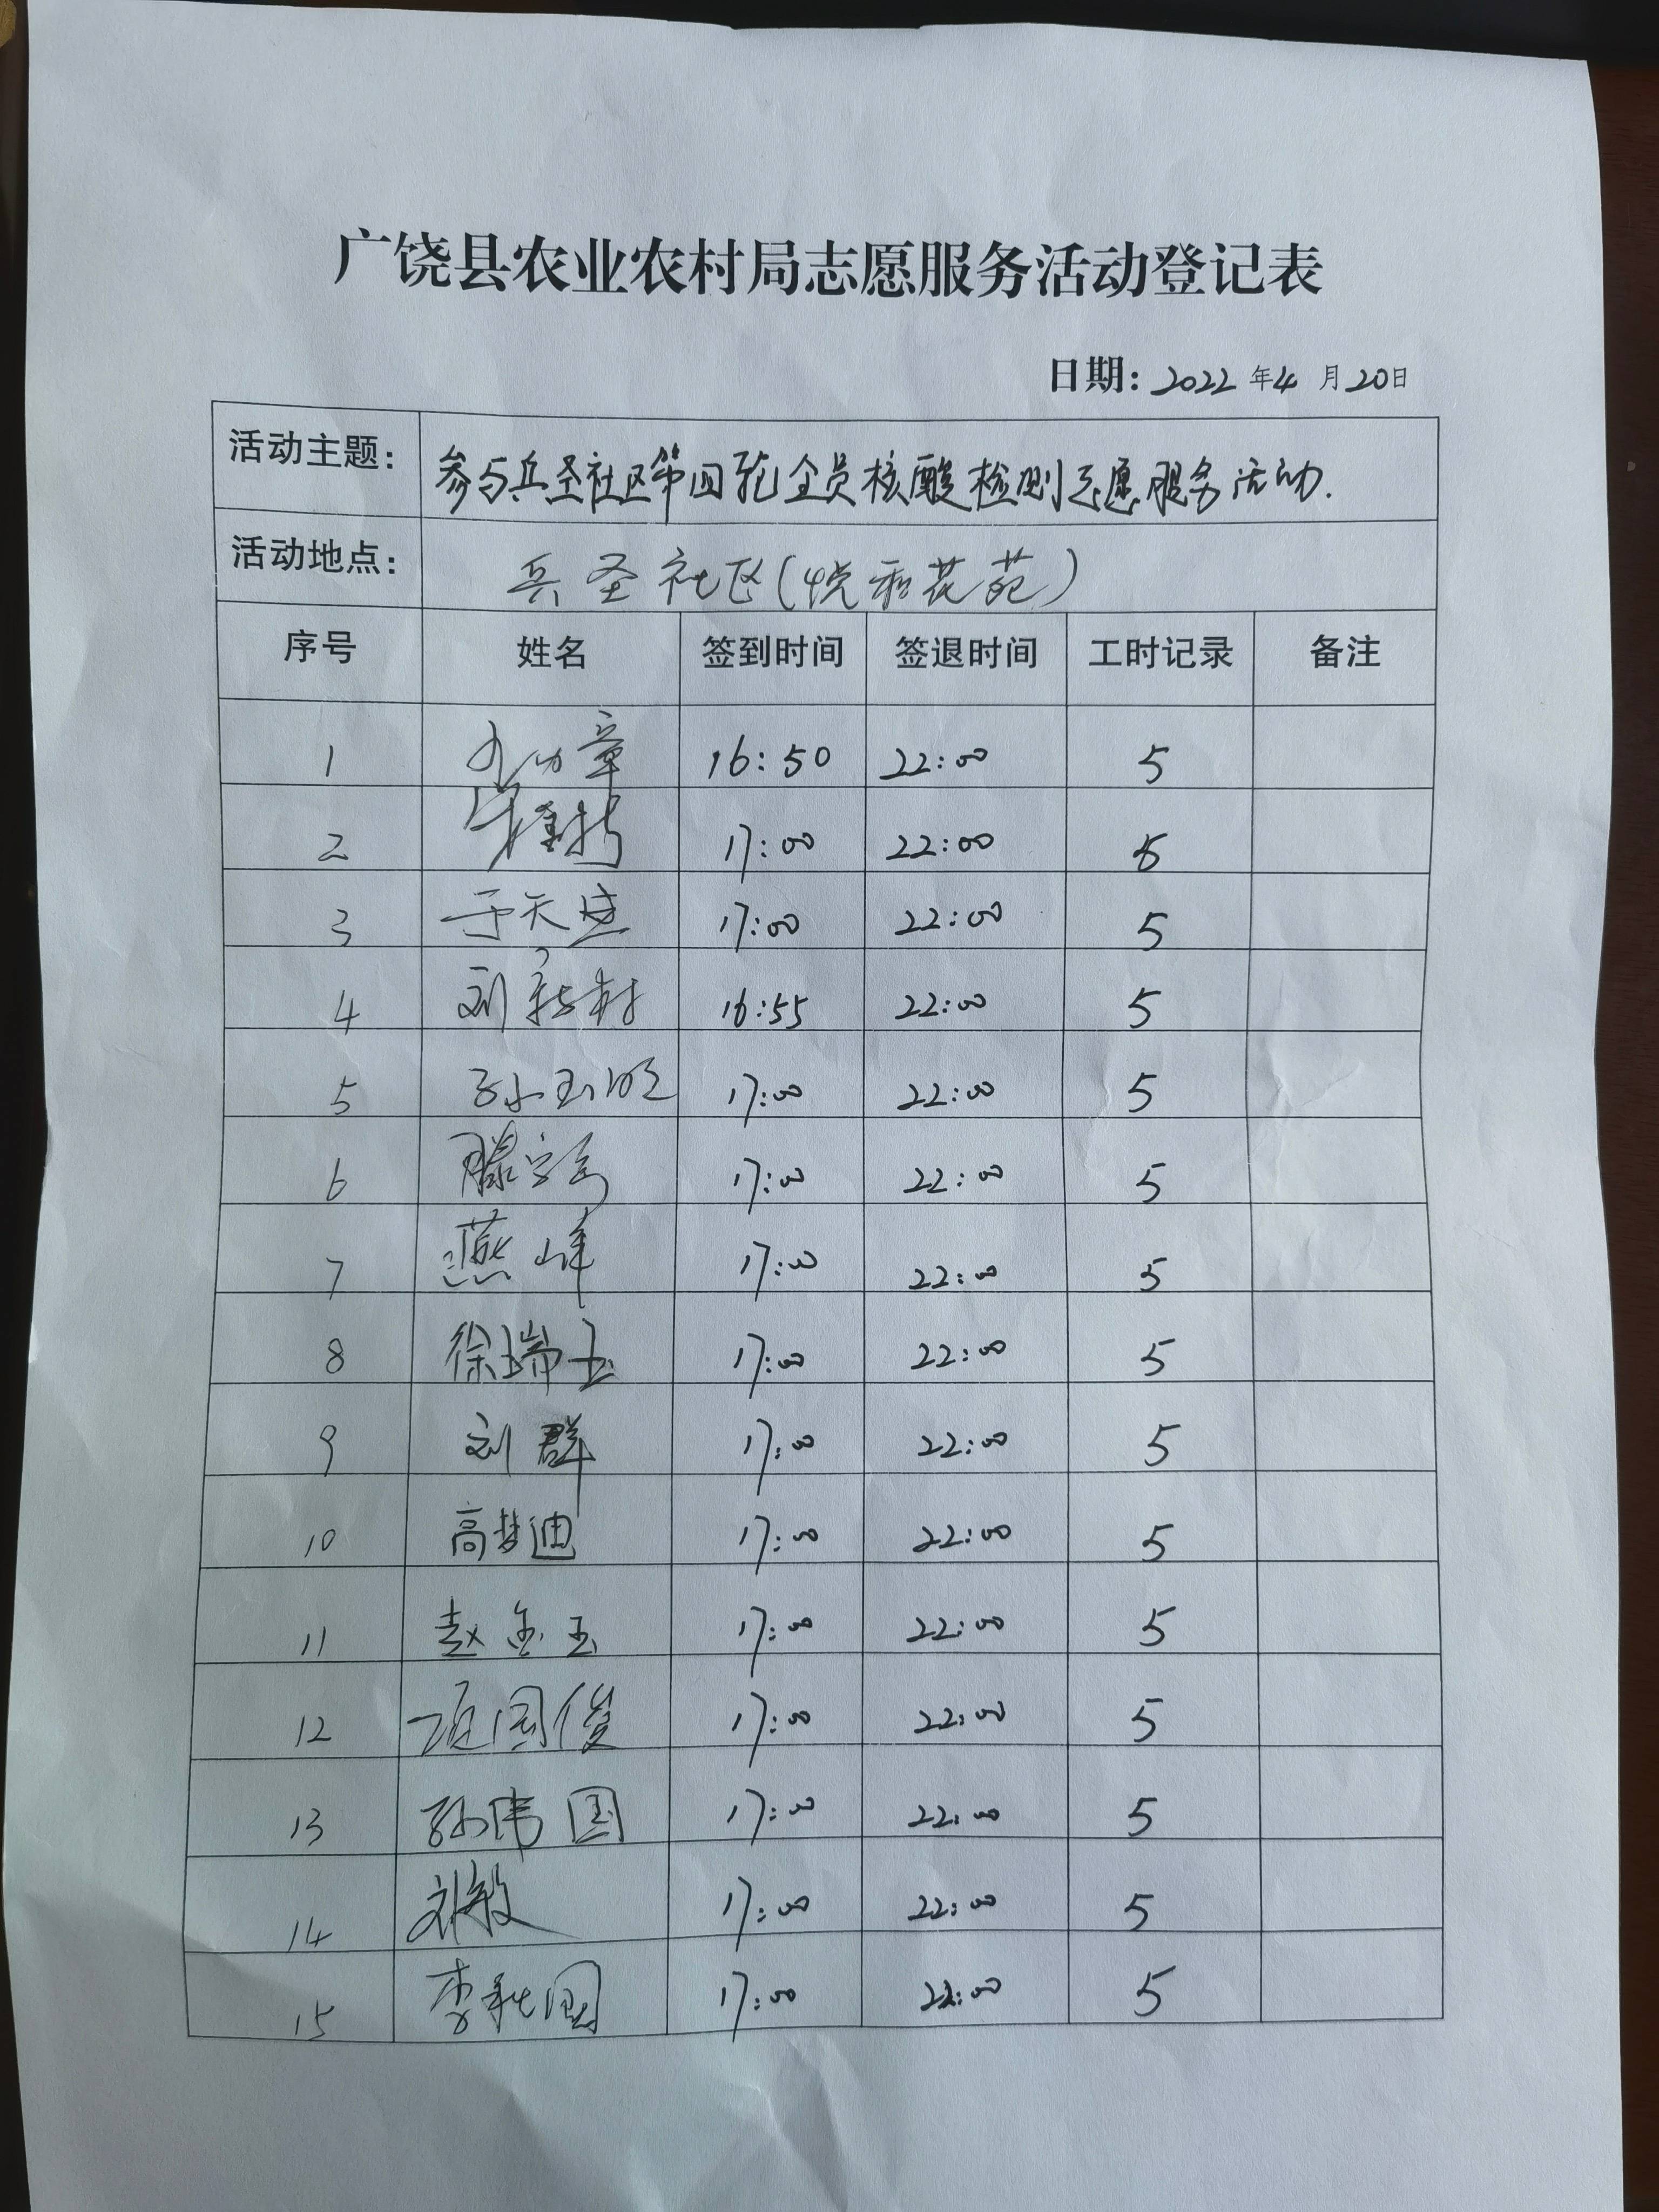 广饶县农业农村局志愿服务活动登记表
日期: 2022 年 4 月 20 日
活动主题: 参与兵圣社区第四轮全员核酸检测志愿服务活动.
活动地点: 兵圣社区(悦和花苑)
序号 姓名 签到时间 签退时间 工时记录 备注
1 16:50 22:00 5
2 17:00 22:00 5
3 于天 17:00 22:00 5
4 刘新村 16:55 22:00 5
5 孙玉明 17:00 22:00 5
6 滕 17:00 22:00 5
7 燕峰 17:00 22:00 5
8 徐瑞玉 17:00 22:00 5
9 刘群 17:00 22:00 5
10 高梦迪 17:00 22:00 5
11 赵金玉 17:00 22:00 5
12 项国俊 17:00 22:00 5
13 孙伟国 17:00 22:00 5
14 刘敏 17:00 22:00 5
15 李 国 17:00 22:00 5